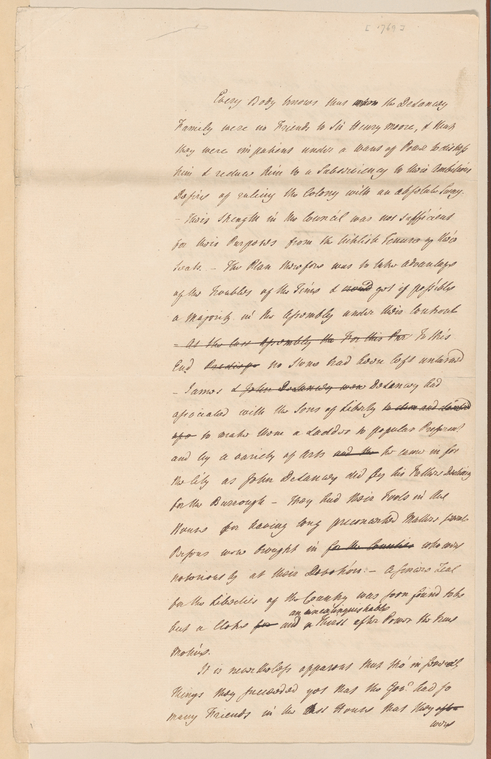 Every Body knows that when the DeLancey
Family were no Friends to Sir Henry Moore, & that
they were impatient under a want of Power to
him & reduce him to a Subserviency to their Ambitious
Desires of ruling the Colony with an absolute Sway.
– Their Strength in the Council was not sufficient
for their Purposes from the ticklish Tenure of their
Seats. – The Plan therefore was to take advantage
of the Troubles of the Times & would get if possible
a Majority in the Assembly under their Controul
– At the last Assembly the For this Pur To this
End no Stone had been left unturned
– James & John Delancey were DeLancey had
associated with the Sons of Liberty
to make them a Ladder to popular Preferment
and by a variety of Arts and the he came in for
the City as John DeLancey did by his Fathers
for the Burrough – They had their Tools in the
House for having long preconcerted Matters some
Persons were brought in for the Counties who were
notoriously at their Devotion: – A fencers Zeal
for the Liberties of the Country was soon found to be
but a Cloke for and an unextinguishable Thirst after Power the true
Motive.
It is nevertheless apparent that tho' in several
Things they succeeded yet that the Govr had so
many Friends in the last House that they
were